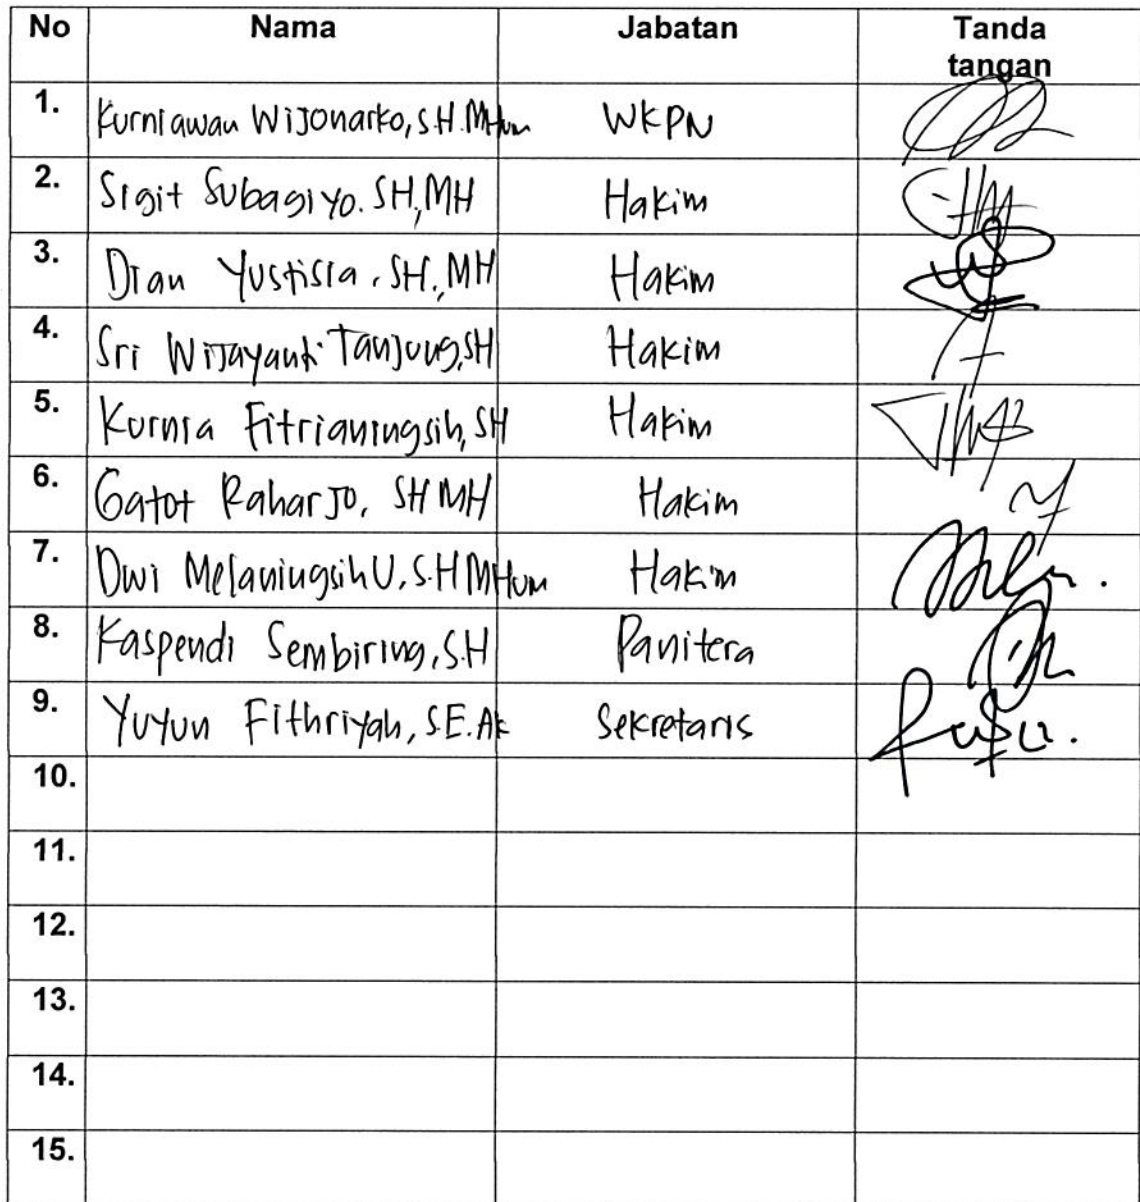 No Nama Jabatan Tanda tangan
1. Kurniawan Wijonarko, S.H. MHum WKPN
2. Sigit Subagiyo. SH, MH Hakim
3. Dian Yustisia, SH., MH Hakim
4. Sri Wijayanti Tanjung, SH Hakim
5. Kurnia Fitrianingsih, SH Hakim
6. Gatot Raharjo, SH MH Hakim
7. Dwi Melaningsih U, S.H MHum Hakim
8. Kaspendi Sembiring, S.H Panitera
9. Yuyun Fithriyah, S.E. Ak Sekretaris
10.
11.
12.
13.
14.
15.